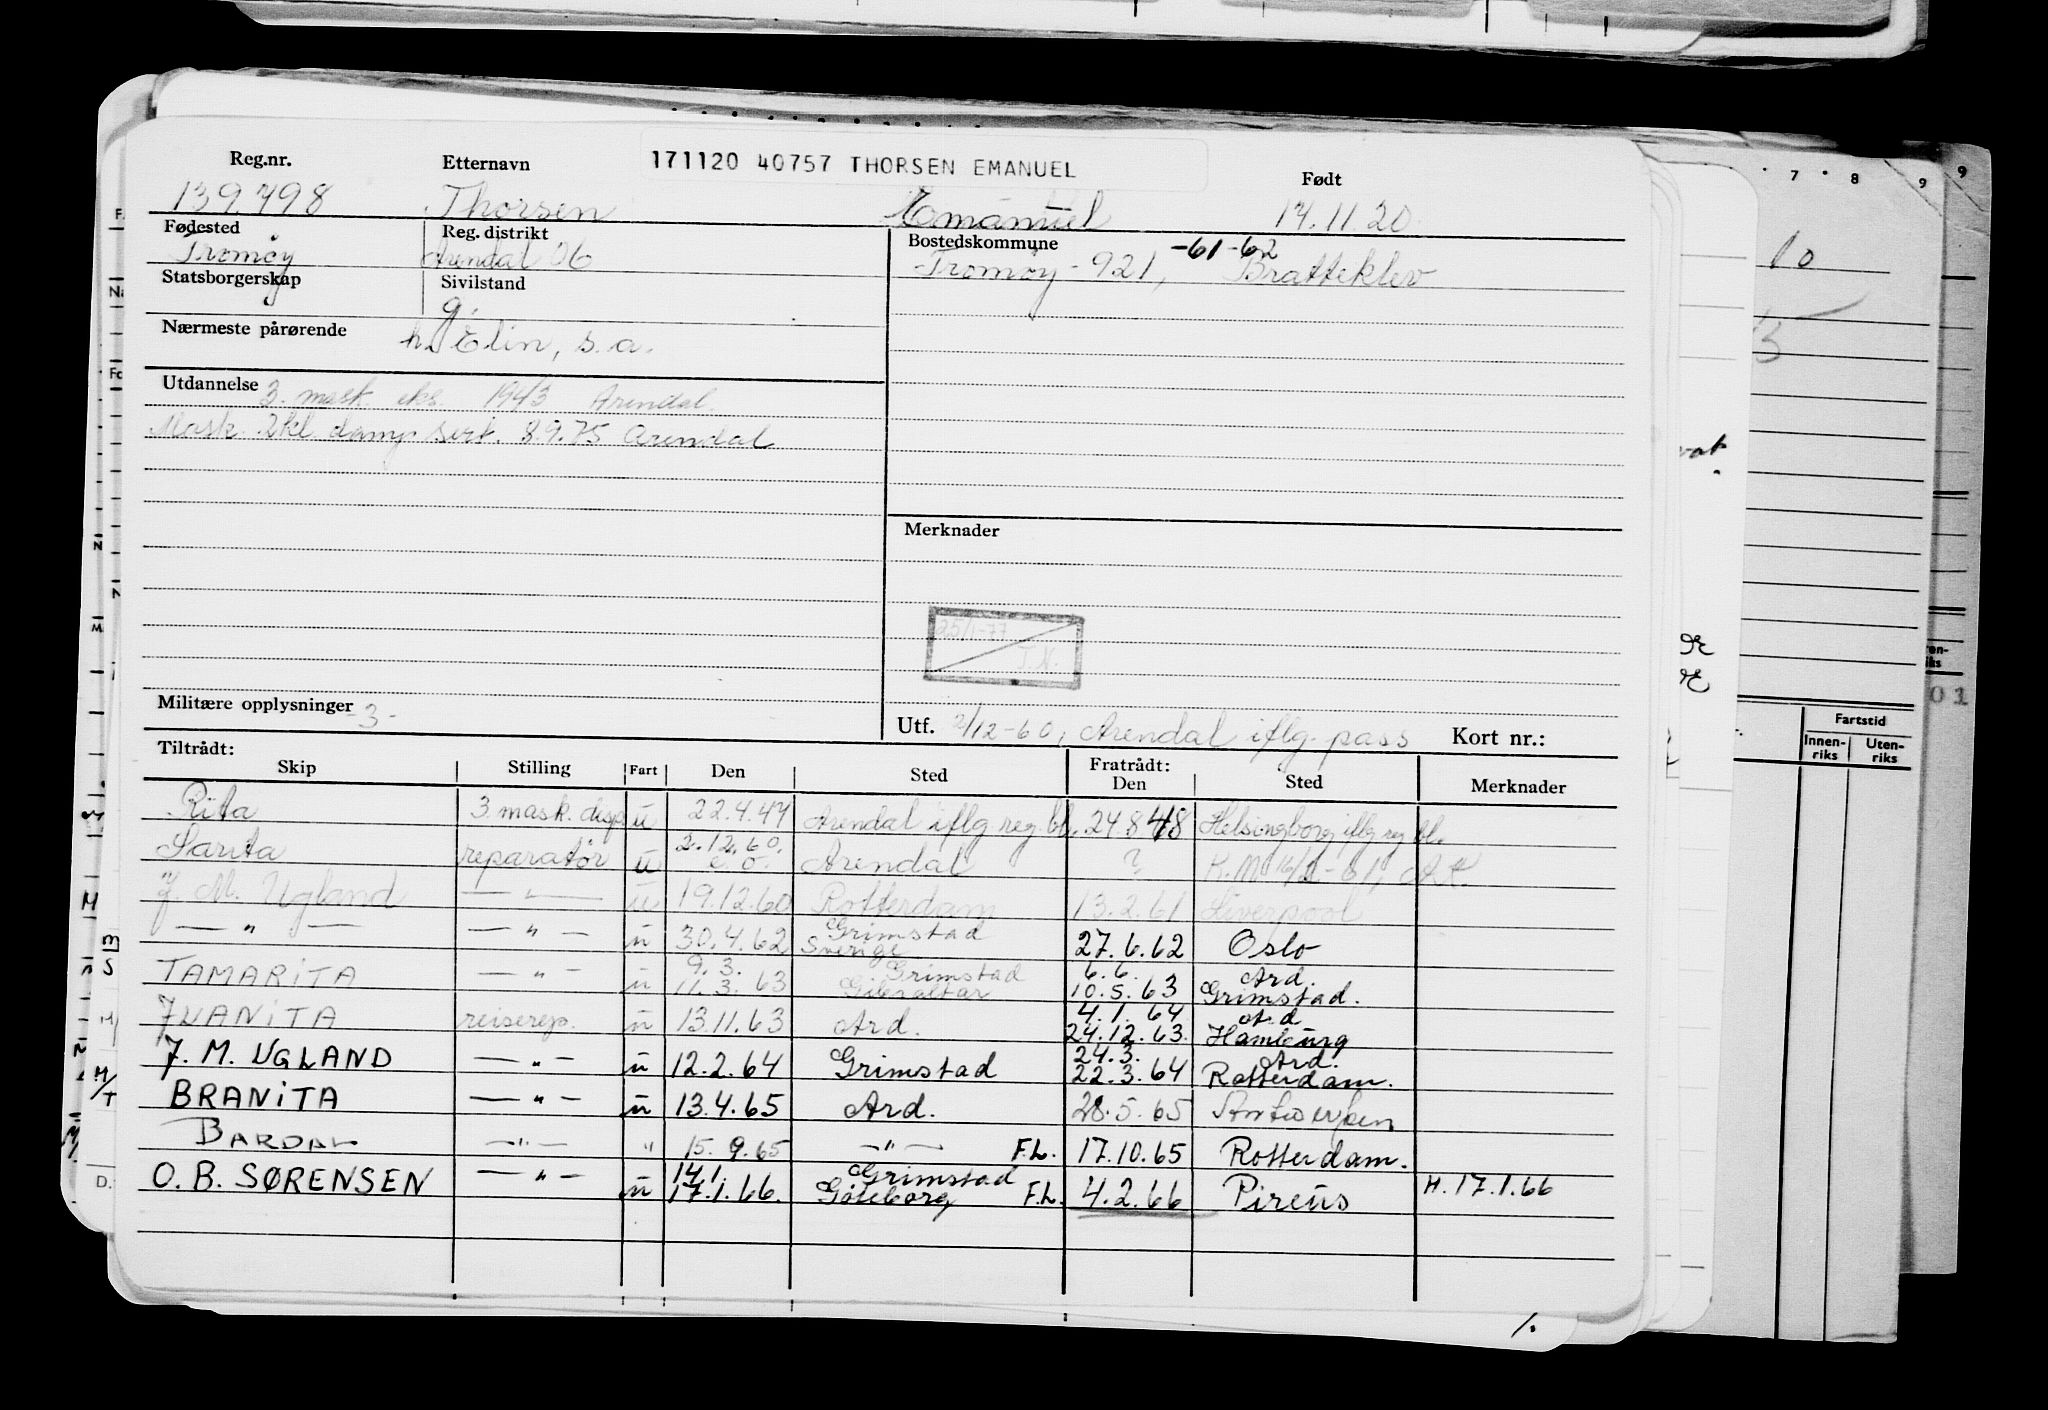 171120 40757 THORSEN EMANUEL
Reg.nr. Etternavn Født
139.798 Thorsen Emanuel 17.11.20
Fødested Reg. distrikt Bostedskommune
Tromøy Arendal 06 Tromøy - 921, -61-62 Bratteklev
Statsborgerskap Sivilstand
g.
Nærmeste pårørende h. Elin, s.a.
Utdannelse 3. mask. eks. 1943 Arendal.
Mask. 2kl. damp sert. 8.9.75 Arendal
Merknader
25/1-77
T.N.
Militære opplysninger -3-
Utf. 2/12-60, Arendal iflg. pass Kort nr.:
Tiltrådt: Fratrådt:
Skip Stilling Fart Den Sted Den Sted Merknader
Rita 3. mask. disp u 22.4.47 Arendal iflg reg. bl. 24.8.48 Helsingborg iflg reg bl.
Sarita reparatør u 2.12.60. e.o. Arendal ?
J. M. Ugland — " — u 19.12.60 Rotterdam 13.2.61 Liverpool
— " — — " — u 30.4.62 Grimstad Sverige 27.6.62 Oslo
TAMARITA — " — u 9.3. 11.3.63 Grimstad Gibraltar 6.6. 10.5.63 Ard. Grimstad.
JUANITA reiserep. u 13.11.63 Ard. 4.1.64 24.12.63. Ard Hamburg
J. M. UGLAND — " — u 12.2.64 Grimstad 24.3. 22.3.64 Ard. Rotterdam.
BRANITA — " — u 13.4.65 Ard. 28.5.65 Antwerpen
BARDAL — " — " 15.9.65 — " — F.L. 17.10.65 Rotterdam.
O. B. SØRENSEN — " — u 14.1. 17.1.66. Grimstad Göteborg F.L. 4.2.66 Pireus H. 17.1.66
7 8 9 9
10
Fartstid
Innen-riks Uten-riks
01